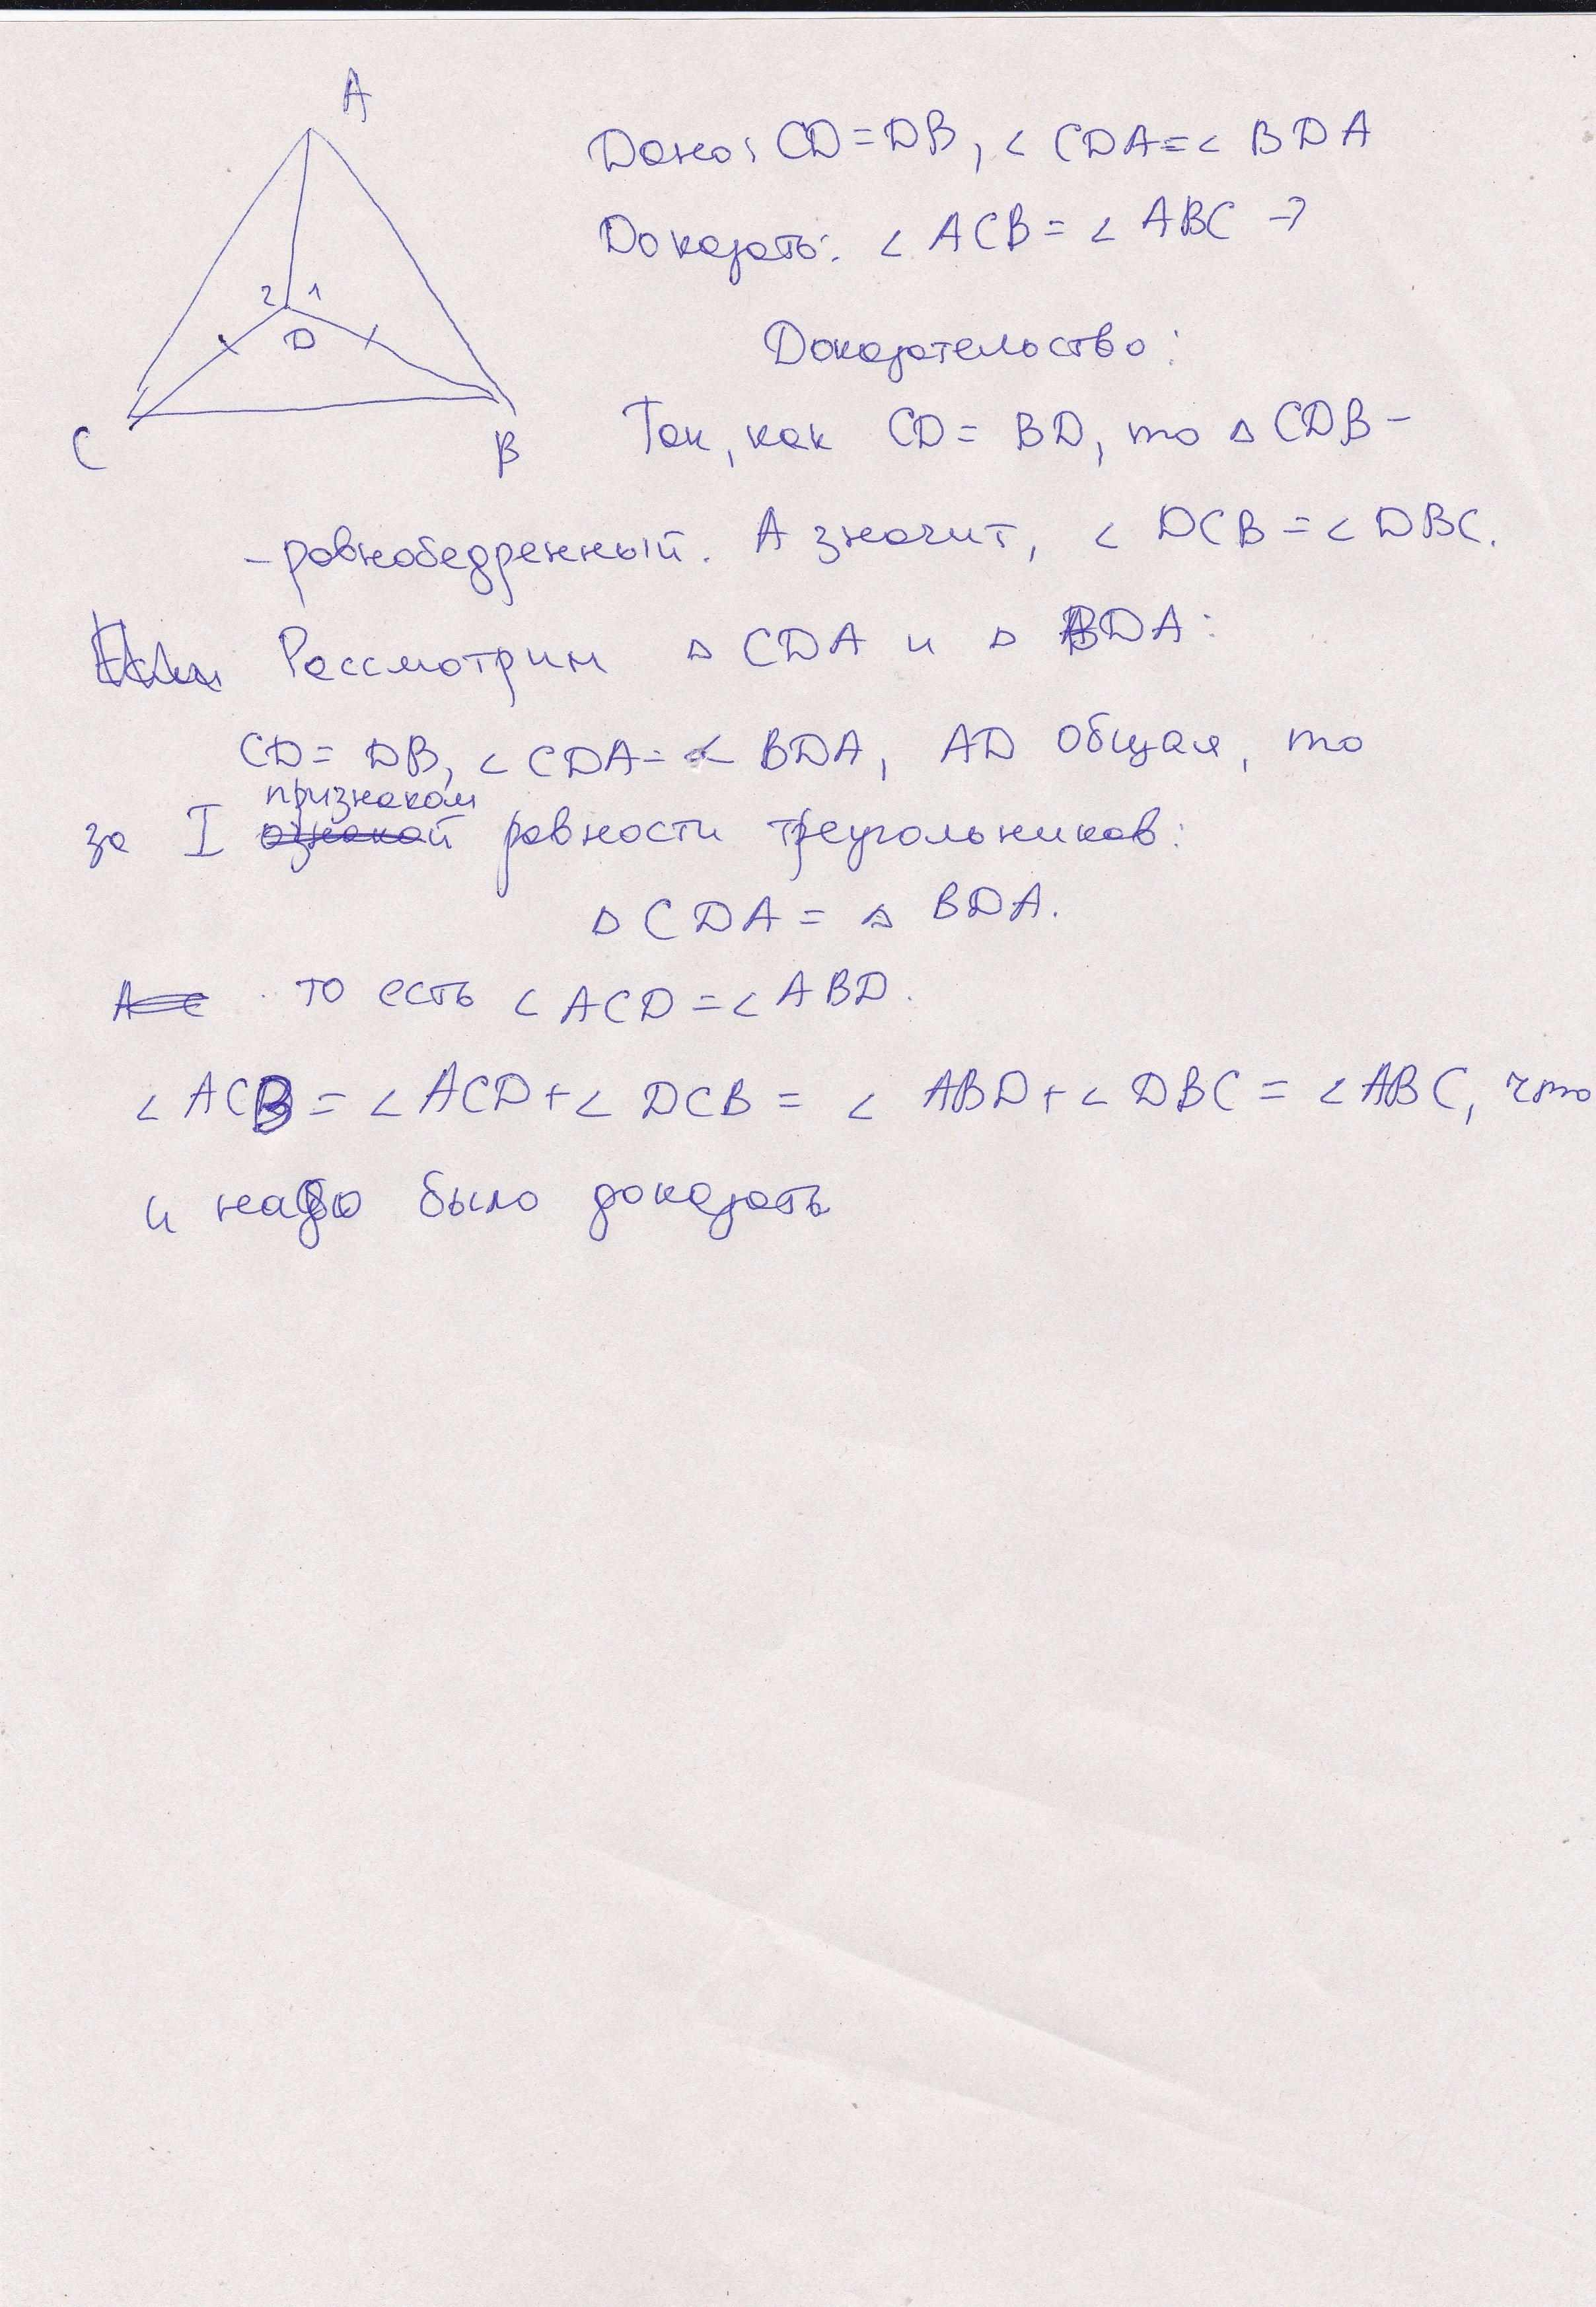 A
2 1
D
C
B
Дано: CD = DB, ∠ CDA = ∠ BDA
Доказать: ∠ ACB = ∠ ABC -?
Доказательство:
Так, как CD = BD, то △ CDB -
- равнобедренный. А значит, ∠ DCB = ∠ DBC.
Рассмотрим △ CDA и △ BDA:
CD = DB, ∠ CDA = ∠ BDA, AD общая, то
признаком
за I ознакой равности треугольников:
△ CDA = △ BDA.
то есть ∠ ACD = ∠ ABD.
∠ ACB = ∠ ACD + ∠ DCB = ∠ ABD + ∠ DBC = ∠ ABC, что
и надо было доказать